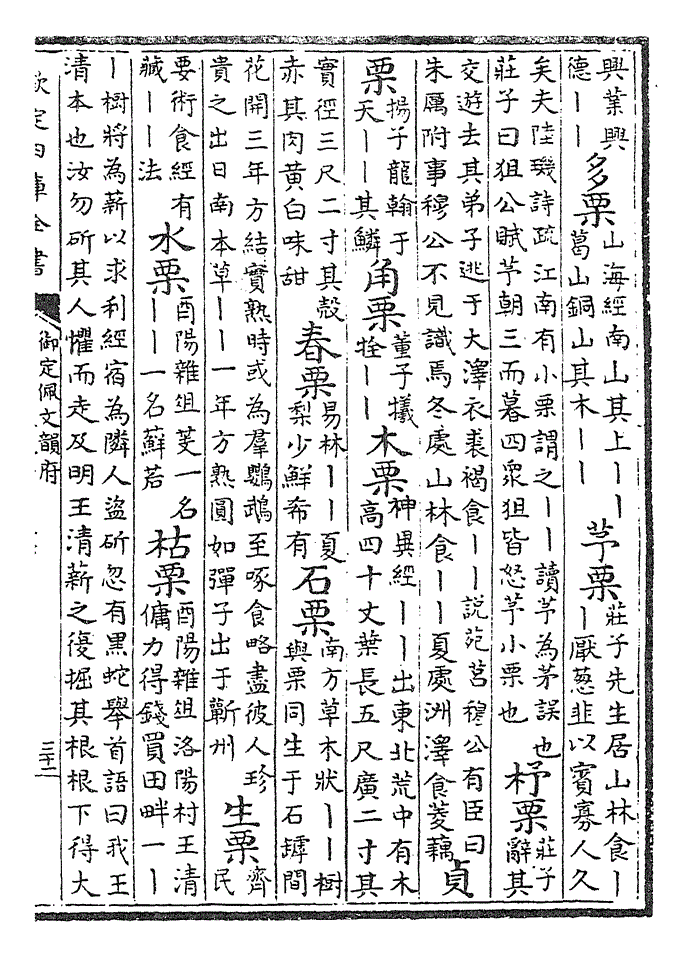 興業興德丨丨 多栗 山海經南山其上丨丨葛山銅山其木丨丨 芧栗 莊子先生居山林食丨丨厭葱韭以賓寡人久
矣夫陸璣詩疏江南有小栗謂之丨丨讀芧為茅誤也莊子曰狙公賦芧朝三而暮四衆狙皆怒芧小栗也 杼栗 莊子辭其
交遊去其弟子逃于大澤衣裘褐食丨丨說苑莒穆公有臣曰朱厲附事穆公不見識焉冬處山林食丨丨夏處洲澤食菱藕 貞
栗 揚子龍翰于天丨丨其鱗 角栗 董子犧牷丨丨 木栗 神異經丨丨出東北荒中有木高四十丈葉長五尺廣二寸其
實徑三尺二寸其殻赤其肉黄白味甜 春栗 易林丨丨夏梨少鮮希有 石栗 南方草木狀丨丨樹與栗同生于石罅間
花開三年方結實熟時或為羣鸚鵡至啄食略盡彼人珍貴之出日南本草丨丨一年方熟圓如彈子出于蘄州 生栗 齊民
要術食經有藏丨丨法 水栗 酉陽雜俎芰一名丨丨一名薢若 枯栗 酉陽雜俎洛陽村王清傭力得錢買田畔一丨
丨樹將為薪以求利經宿為隣人盜斫忽有黒蛇舉首語曰我王清本也汝勿斫其人懼而走及明王清薪之復掘其根根下得大
欽定四庫全書 御定佩文韻府 三十二